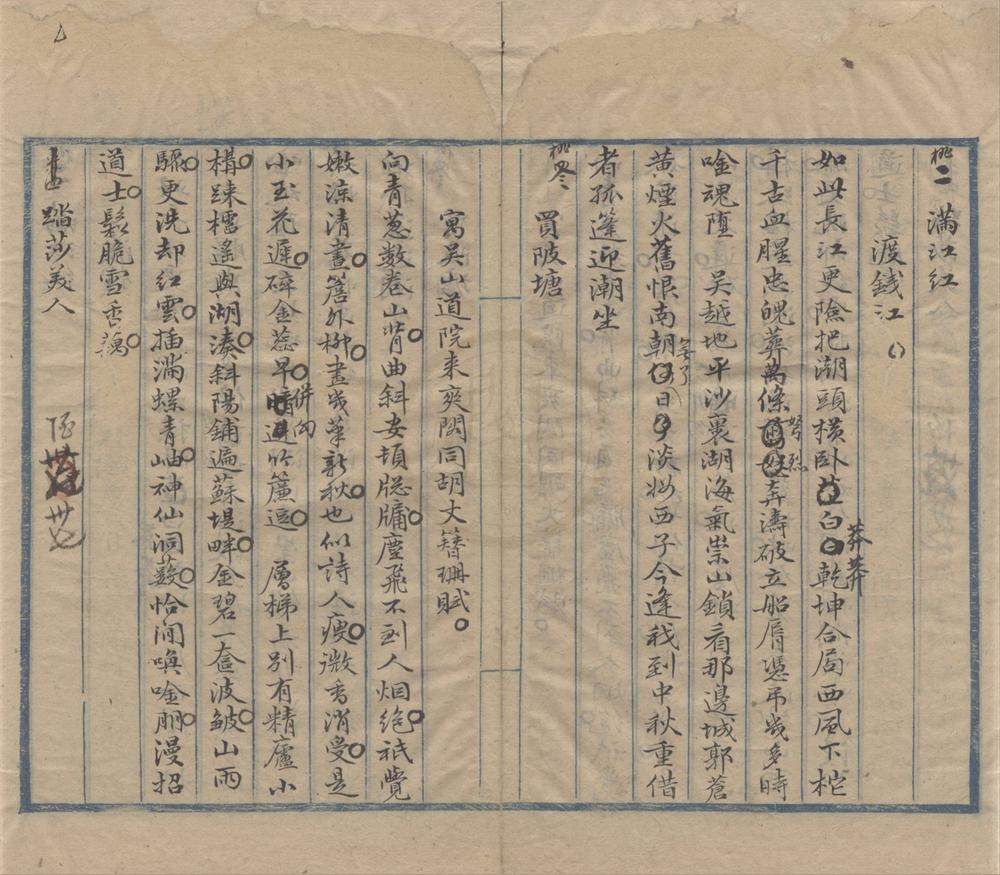 滿江紅
渡錢江
如此長江更險把湖頭橫臥白莽莽乾坤合局西風下柁
千古血腥忠魄葬萬條弩烈奔濤破立船脣憑弔幾多時
唫魂墮　吳越地平沙裹湖海氣崇山鎖看那邊城郭蒼
黃煙火舊恨南朝無了日淡妝西子今逢我到中秋重借
者孤篷迎潮坐
買陂塘
寓吳山道院來爽閣同胡丈簪珊賦
向青蔥數巷山背曲斜安頓牕牖塵飛不到人烟絕祇覺
嫩涼清晝簷外柳畫幾筆新秋也似詩人瘦微香消受是
小玉花遲碎金蕊早併向竹簾逗　層梯上別有精廬小
構踈櫺遙與湖湊斜陽鋪遍蘇堤畔金碧一奩波皺山雨
驟更洗却紅雲插滿螺青岫神仙洞藪恰閒喚唫朋漫招
道士鬆脆雪香藕
踏莎美人